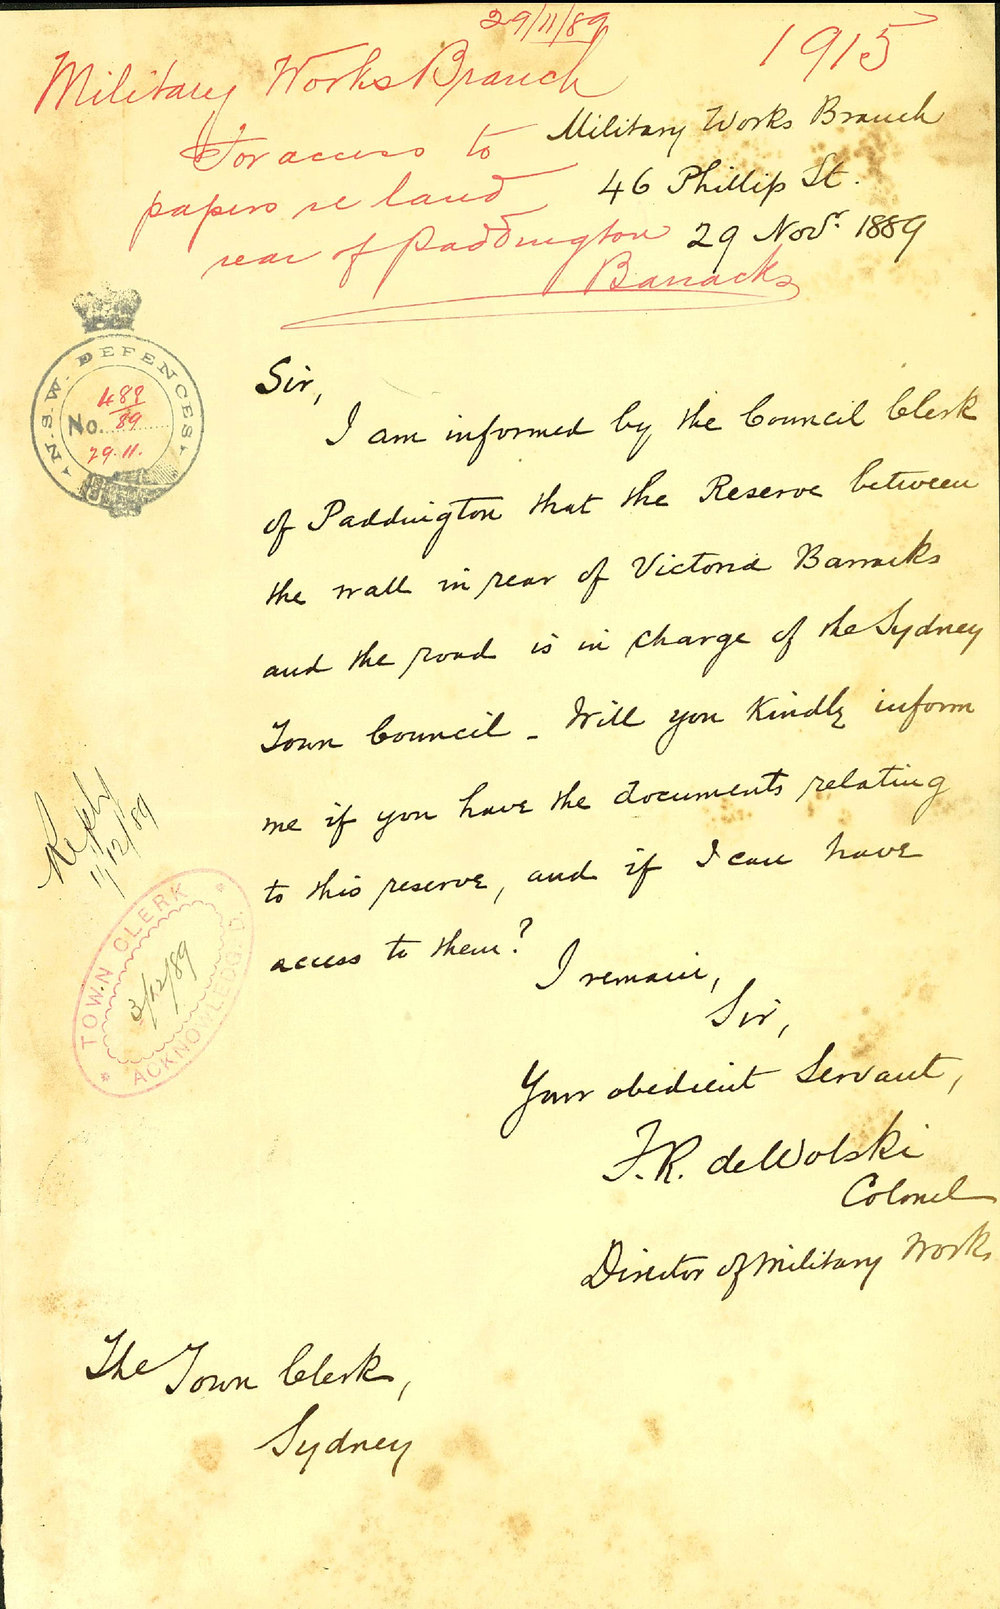 29/11/89
1915
Military Works Branch
For access to
papers re land
rear of Paddington
Barracks
Military Works Branch
46 Phillip St.
29 Novr. 1889
N.S.W. DEFENCES
No. 489/89
29.11.
Sir,
I am informed by the Council Clerk
of Paddington that the Reserve between
the wall in rear of Victoria Barracks
and the road is in charge of the Sydney
Town Council - Will you kindly inform
me if you have the documents relating
to this reserve, and if I can have
access to them?
I remain,
Sir,
Your obedient Servant,
F.R. de Wolski
Colonel
Director of Military Works
Reply
11/12/89
TOWN CLERK
3/12/89
ACKNOWLEDG'D.
The Town Clerk,
Sydney